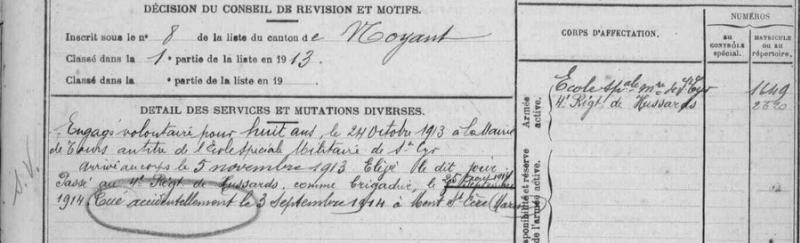 DÉCISION DU CONSEIL DE REVISION ET MOTIFS.
Inscrit sous le n° 8 de la liste du canton de Noyant
Classé dans la 1e partie de la liste en 1913.
Classé dans la partie de la liste en 19
DÉTAIL DES SERVICES ET MUTATIONS DIVERSES.
Engagé volontaire pour huit ans, le 24 Octobre 1913 à la Mairie
de Tours au titre de l'Ecole spéciale Militaire de St Cyr
arrivé au corps le 5 novembre 1913. Elève le dit jour
Passé au 4e Régt de Hussards, comme Brigadier, le
1914 Tué accidentellement le 3 Septembre 1914 à Mont St Père (Marne)
CORPS D'AFFECTATION.
NUMÉROS
AU CONTRÔLE spécial.
MATRICULE OU AU répertoire.
Armée active.
Ecole spale mre de St Cyr 1649
4e Régt de Hussards
Disponibilité et réserve de l'armée active.